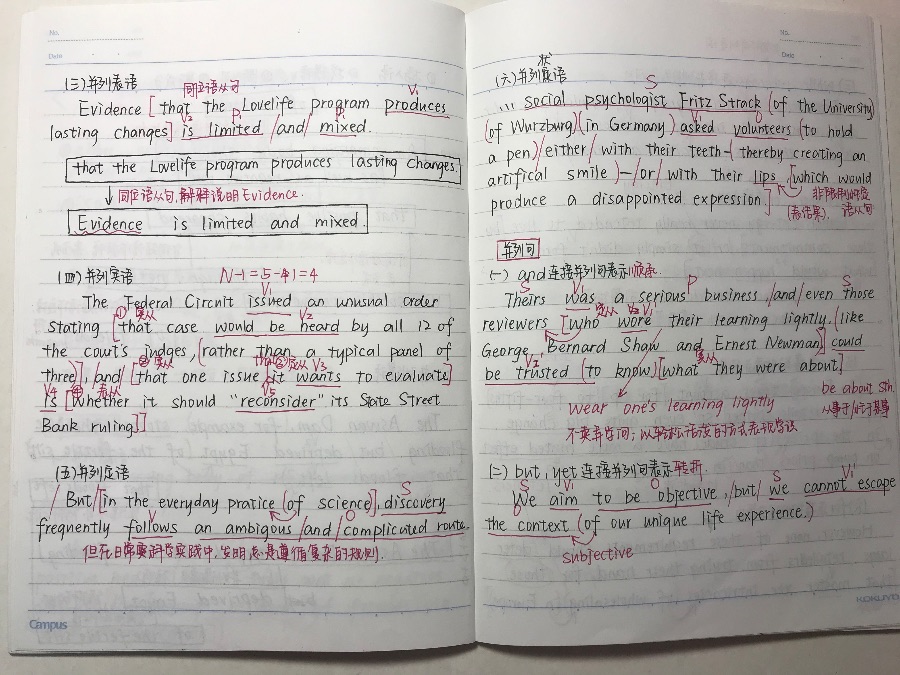 No.
Date
(三)并列表语
同位语从句 V1
Evidence [that the Lovelife program produces
V2 P1 P2
lasting changes] is limited /and/ mixed.
that the Lovelife program produces lasting changes.
↓ 同位语从句,解释说明Evidence.
Evidence is limited and mixed.
(四)并列宾语 N-1=5-1=4
V1
The Federal Circuit issued an unusual order
① 宾从 V2
stating [that case would be heard by all 12 of
the court's judges, (rather than a typical panel of
② 宾从 V3
three)], and [that one issue it wants to evaluate]
V4 V5
is [whether it should "reconsider" its State Street
Bank ruling]]
(五)并列定语
S
/But/[in the everyday pratice (of science)], discovery
V O
frequently follows an ambigous /and/ complicated route.
但在日常实践中,发明总是遵循复杂的规则.
Campus
No.
Date
状
(六)并列定语
S
... social psychologist Fritz Strack (of the University)
V O
(of Wurzburg)(in Germany) asked volunteers (to hold
a pen)/either/ with their teeth-(thereby creating an
artifical smile)-/or/ with their lips, [which would
produce a disappointed expression.]
非限制性定语从句
(表结果)
并列句
(一) and连接并列句表示顺承.
S V1 P S
Theirs was a serious business, /and/ even those
定从 V2
reviewers [who wore their learning lightly, (like
George Bernard Shaw and Ernest Newman] could
V2 宾从
be trusted (to know) [what they were about]
be about sth.
wear one's learning lightly
(二) but, yet连接并列句表示转折.
S V O S V1
We aim to be objective, /but/ we cannot escape
O
the context (of our unique life experience.)
subjective
KOKUYO